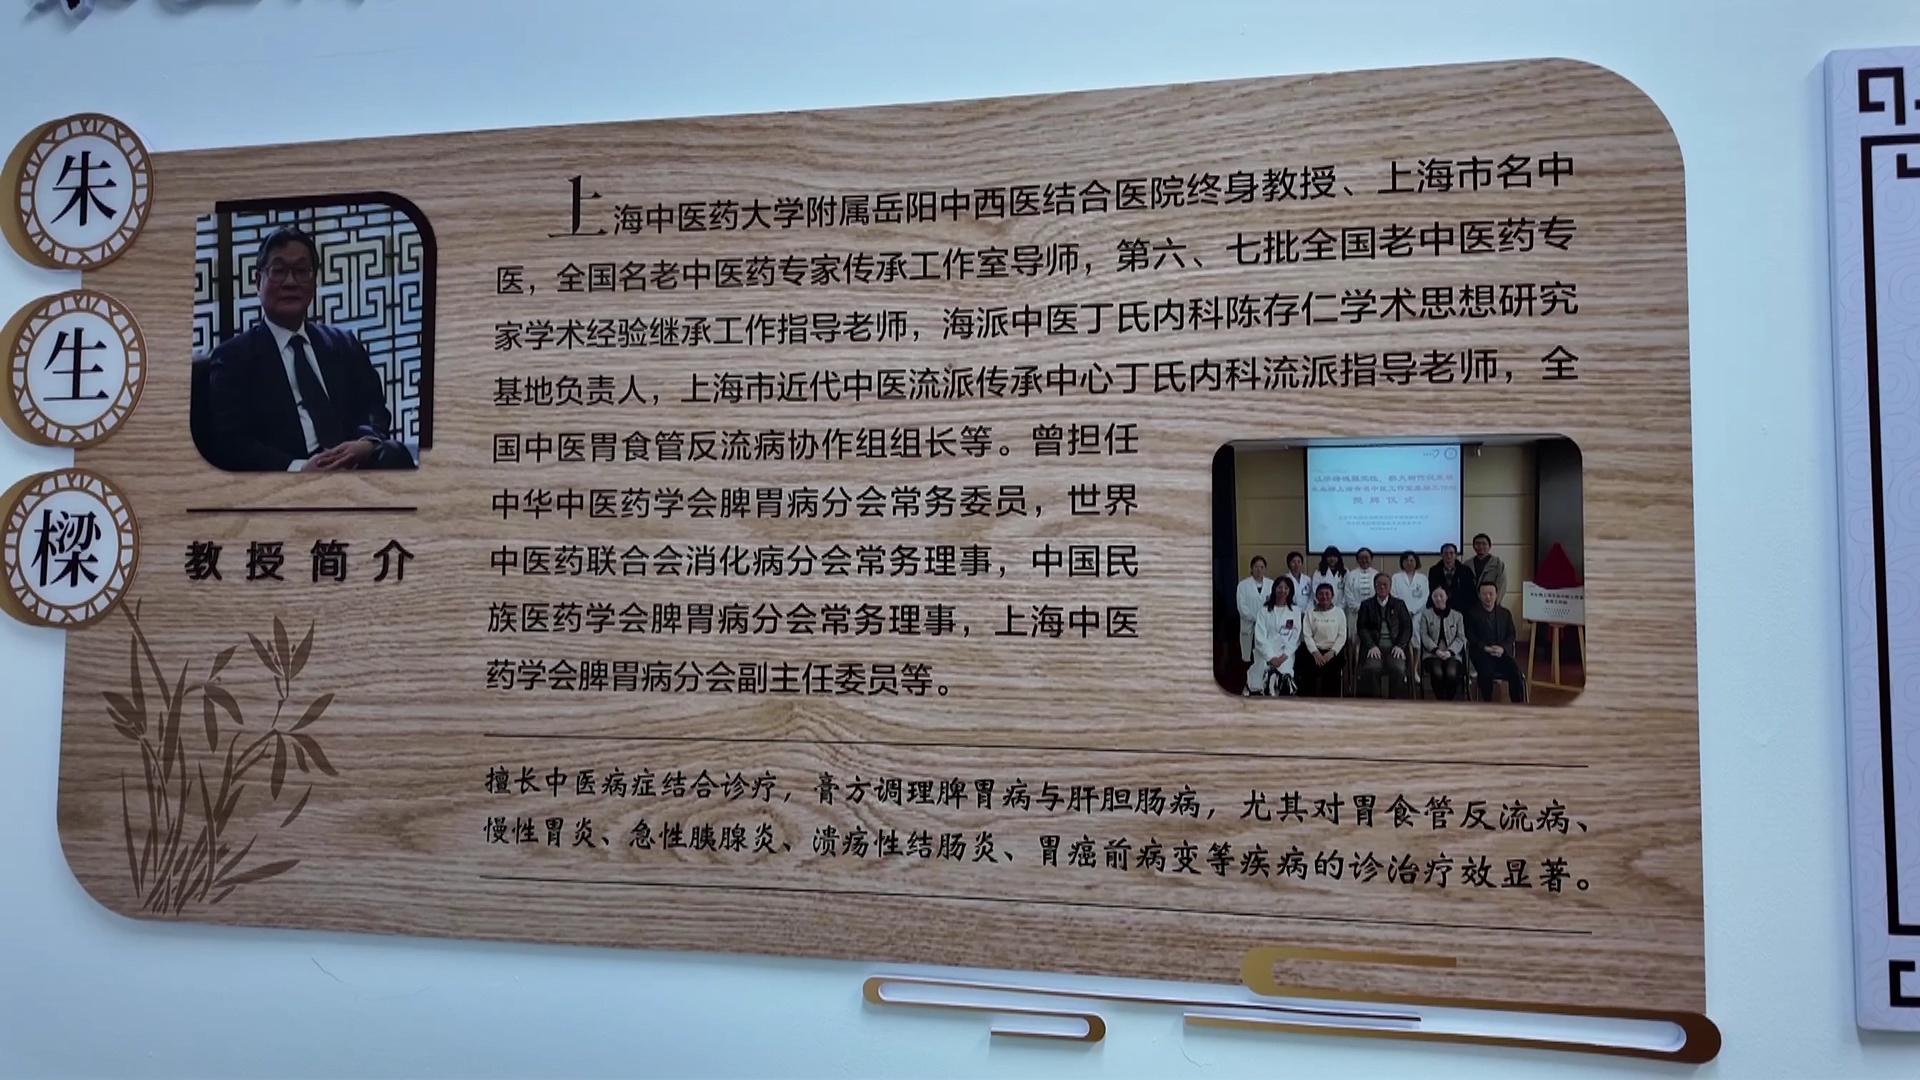 朱
生
樑
教授简介
上海中医药大学附属岳阳中西医结合医院终身教授、上海市名中
医，全国名老中医药专家传承工作室导师，第六、七批全国老中医药专
家学术经验继承工作指导老师，海派中医丁氏内科陈存仁学术思想研究
基地负责人，上海市近代中医流派传承中心丁氏内科流派指导老师，全
国中医胃食管反流病协作组组长等。曾担任
中华中医药学会脾胃病分会常务委员，世界
中医药联合会消化病分会常务理事，中国民
族医药学会脾胃病分会常务理事，上海中医
药学会脾胃病分会副主任委员等。
擅长中医病症结合诊疗，膏方调理脾胃病与肝胆肠病，尤其对胃食管反流病、
慢性胃炎、急性胰腺炎、溃疡性结肠炎、胃癌前病变等疾病的诊治疗效显著。